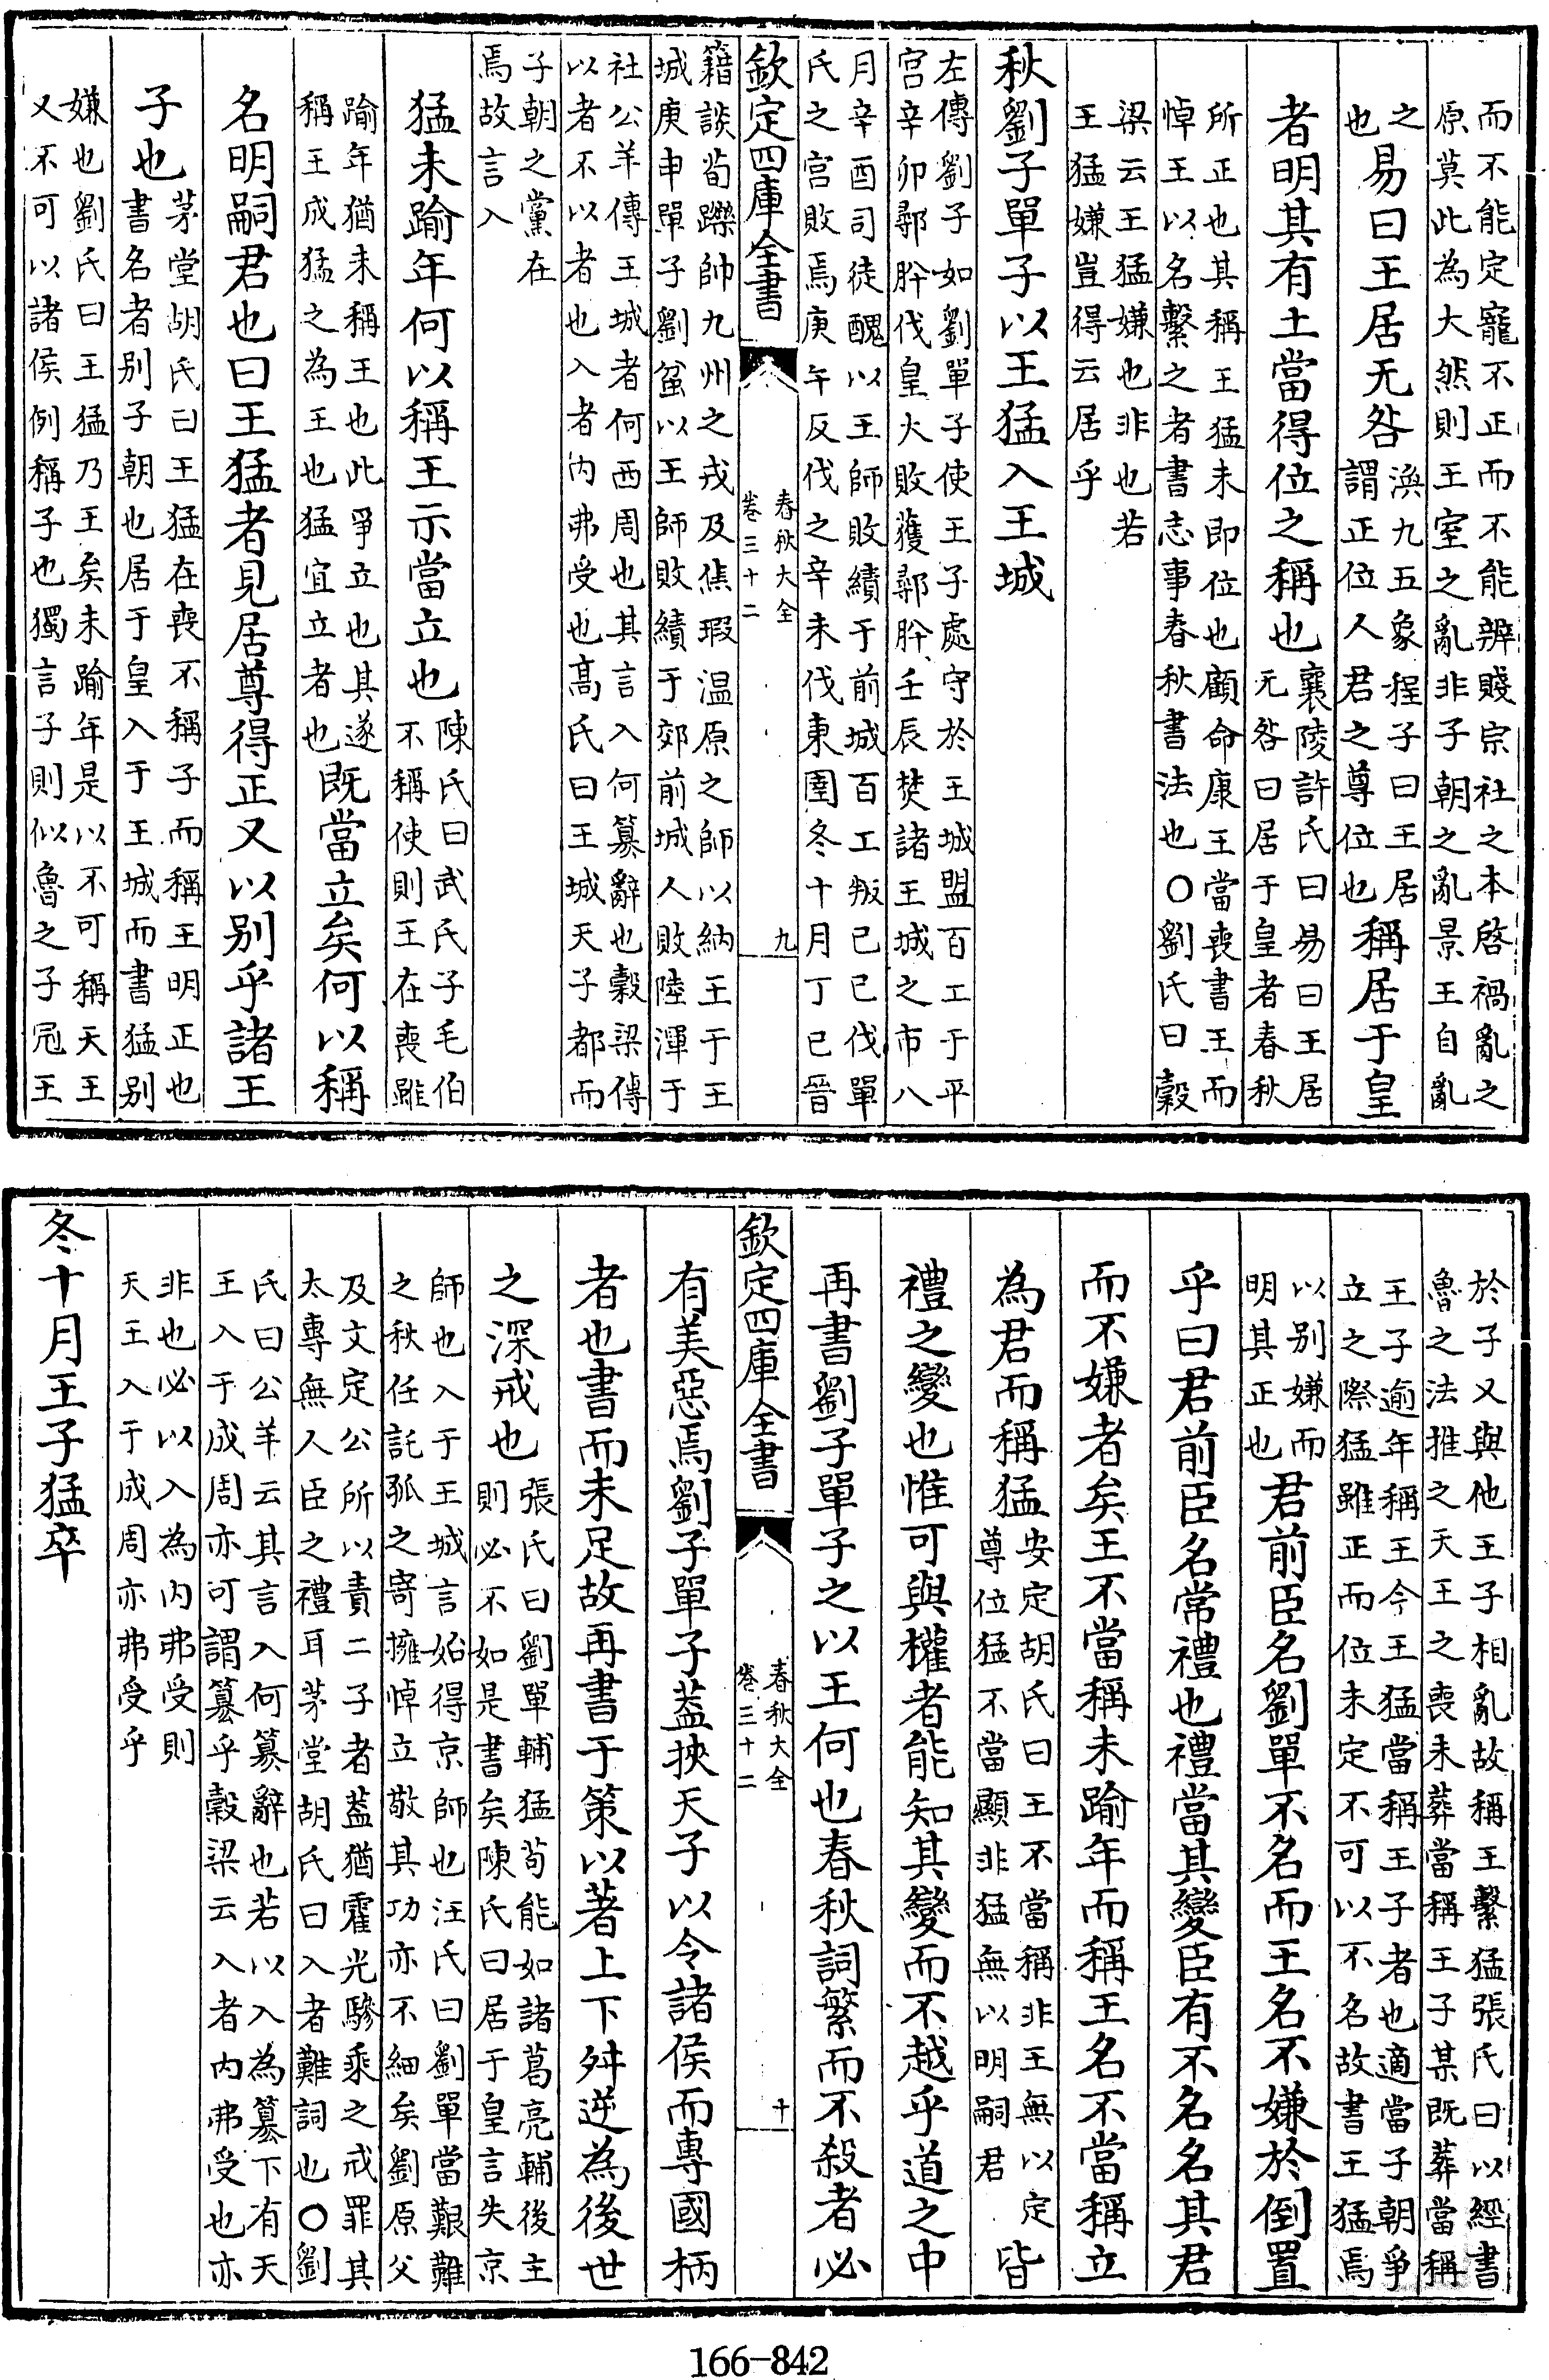 而不能定寵不正而不能辨賤宗社之本啓禍亂之
原莫此為大然則王室之亂非子朝之亂景王自亂
之
也
易曰王居无咎
渙九五象程子曰王居
謂正位人君之尊位也
稱居于皇
者明其有土當得位之稱也
襄陵許氏曰易曰王居
无咎曰居于皇者春秋
所正也其稱王猛未即位也顧命康王當喪書王而
悼王以名繫之者書志事春秋書法也○劉氏曰穀
梁云王猛嫌也非也若
王猛嫌豈得云居乎
秋劉子單子以王猛入王城
左傳劉子如劉單子使王子處守於王城盟百工于平
宫辛卯鄩肸伐皇大敗獲鄩肸壬辰焚諸王城之市八
月辛酉司徒醜以王師敗績于前城百工叛己巳伐單
氏之宫敗焉庚午反伐之辛未伐東圉冬十月丁巳晉
欽定四庫全書
春秋大全
卷三十二
九
籍談荀躒帥九州之戎及焦瑕温原之師以納王于王
城庚申單子劉蚠以王師敗績于郊前城人敗陸渾于
社公羊傳王城者何西周也其言入何篡辭也穀梁傳
以者不以者也入者内弗受也髙氏曰王城天子都而
子朝之黨在
焉故言入
猛未踰年何以稱王示當立也
陳氏曰武氏子毛伯
不稱使則王在喪雖
踰年猶未稱王也此爭立也其遂
稱王成猛之為王也猛宜立者也
既當立矣何以稱
名明嗣君也曰王猛者見居尊得正又以别乎諸王
子也
茅堂胡氏曰王猛在喪不稱子而稱王明正也
書名者别子朝也居于皇入于王城而書猛别
嫌也劉氏曰王猛乃王矣未踰年是以不可稱天王
又不可以諸侯例稱子也獨言子則似魯之子冠王
於子又與他王子相亂故稱王繫猛張氏曰以經書
魯之法推之天王之喪未葬當稱王子某既葬當稱
王子逾年稱王今王猛當稱王子者也適當子朝爭
立之際猛雖正而位未定不可以不名故書王猛焉
以别嫌而
明其正也
君前臣名劉單不名而王名不嫌於倒置
乎曰君前臣名常禮也禮當其變臣有不名名其君
而不嫌者矣王不當稱未踰年而稱王名不當稱立
為君而稱猛
安定胡氏曰王不當稱非王無以定
尊位猛不當顯非猛無以明嗣君
皆
禮之變也惟可與權者能知其變而不越乎道之中
再書劉子單子之以王何也春秋詞繁而不殺者必
欽定四庫全書
春秋大全
卷三十二
十
有美惡焉劉子單子葢挾天子以令諸侯而專國柄
者也書而未足故再書于策以著上下舛逆為後世
之深戒也
張氏曰劉單輔猛茍能如諸葛亮輔後主
則必不如是書矣陳氏曰居于皇言失京
師也入于王城言始得京師也汪氏曰劉單當艱難
之秋任託孤之寄擁悼立敬其功亦不細矣劉原父
及文定公所以責二子者葢猶霍光驂乘之戒罪其
太專無人臣之禮耳茅堂胡氏曰入者難詞也○劉
氏曰公羊云其言入何篡辭也若以入為篡下有天
王入于成周亦可謂篡乎穀梁云入者内弗受也亦
非也必以入為内弗受則
天王入于成周亦弗受乎
冬十月王子猛卒
166-842